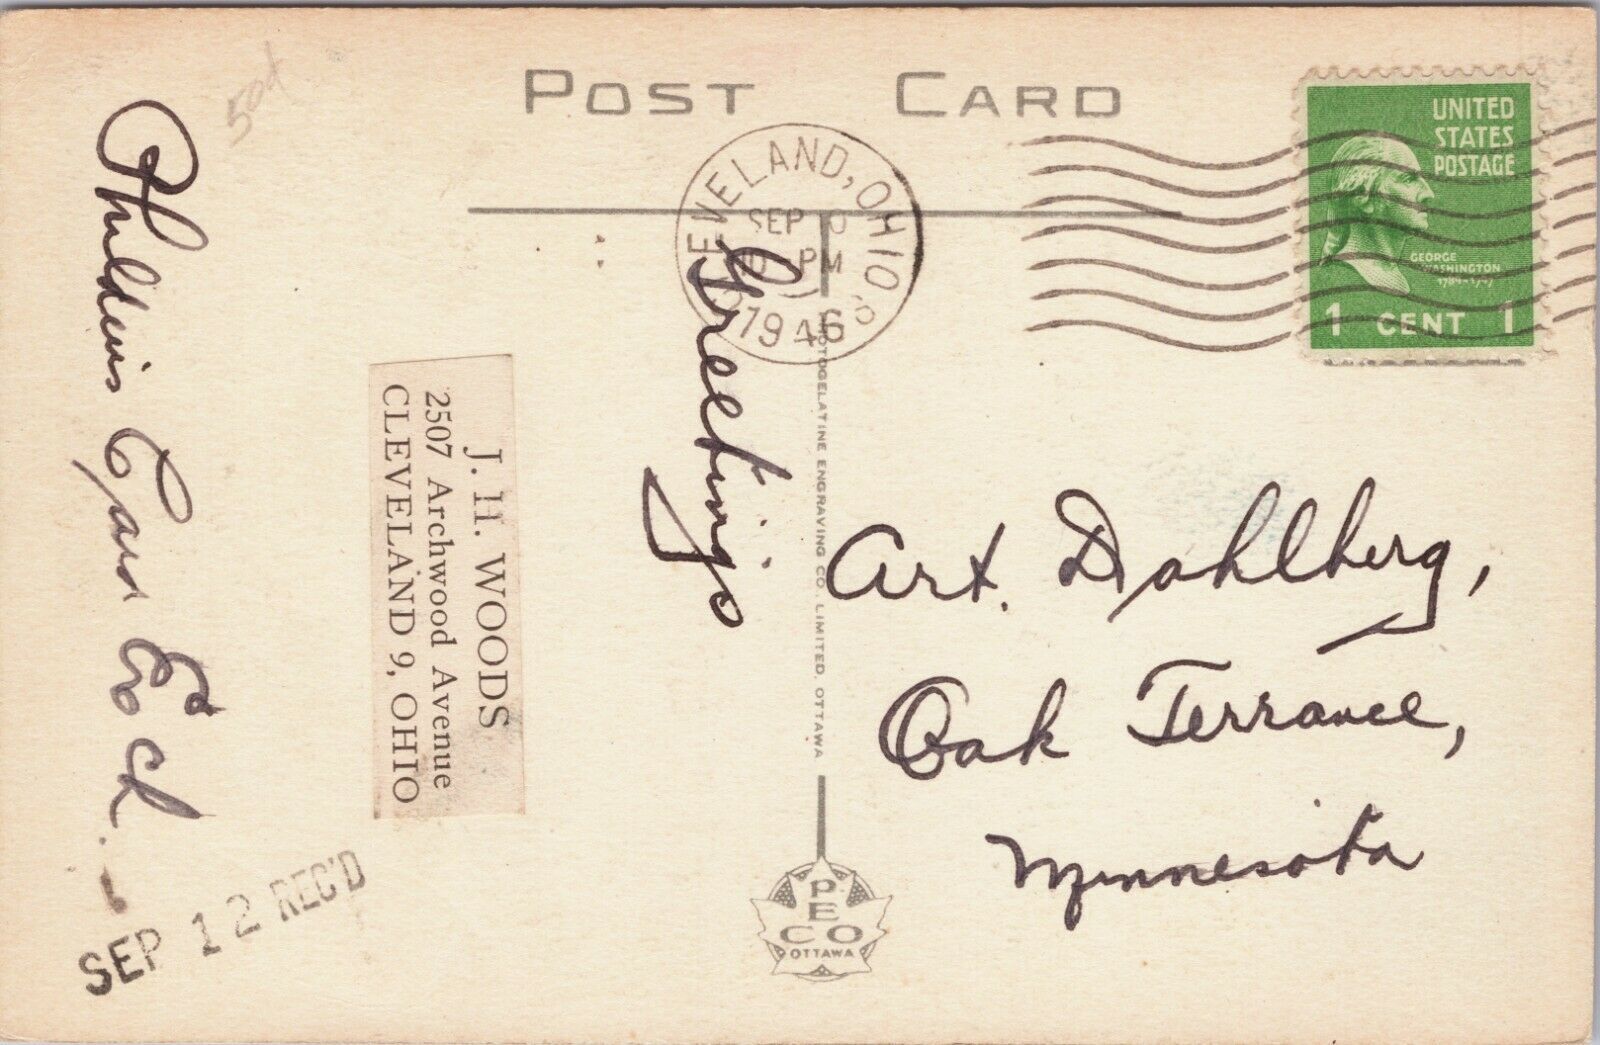 POST CARD
UNITED
STATES
POSTAGE
GEORGE
WASHINGTON
1 CENT 1
CLEVELAND, OHIO
SEP
PM
1946
Greetings
J. H. WOODS
2507 Archwood Avenue
CLEVELAND 9, OHIO
PHOTOGELATINE ENGRAVING CO. LIMITED, OTTAWA
Art. Dahlberg,
Oak Terrance,
Minnesota
SEP 12 REC'D
PECO
OTTAWA
50¢